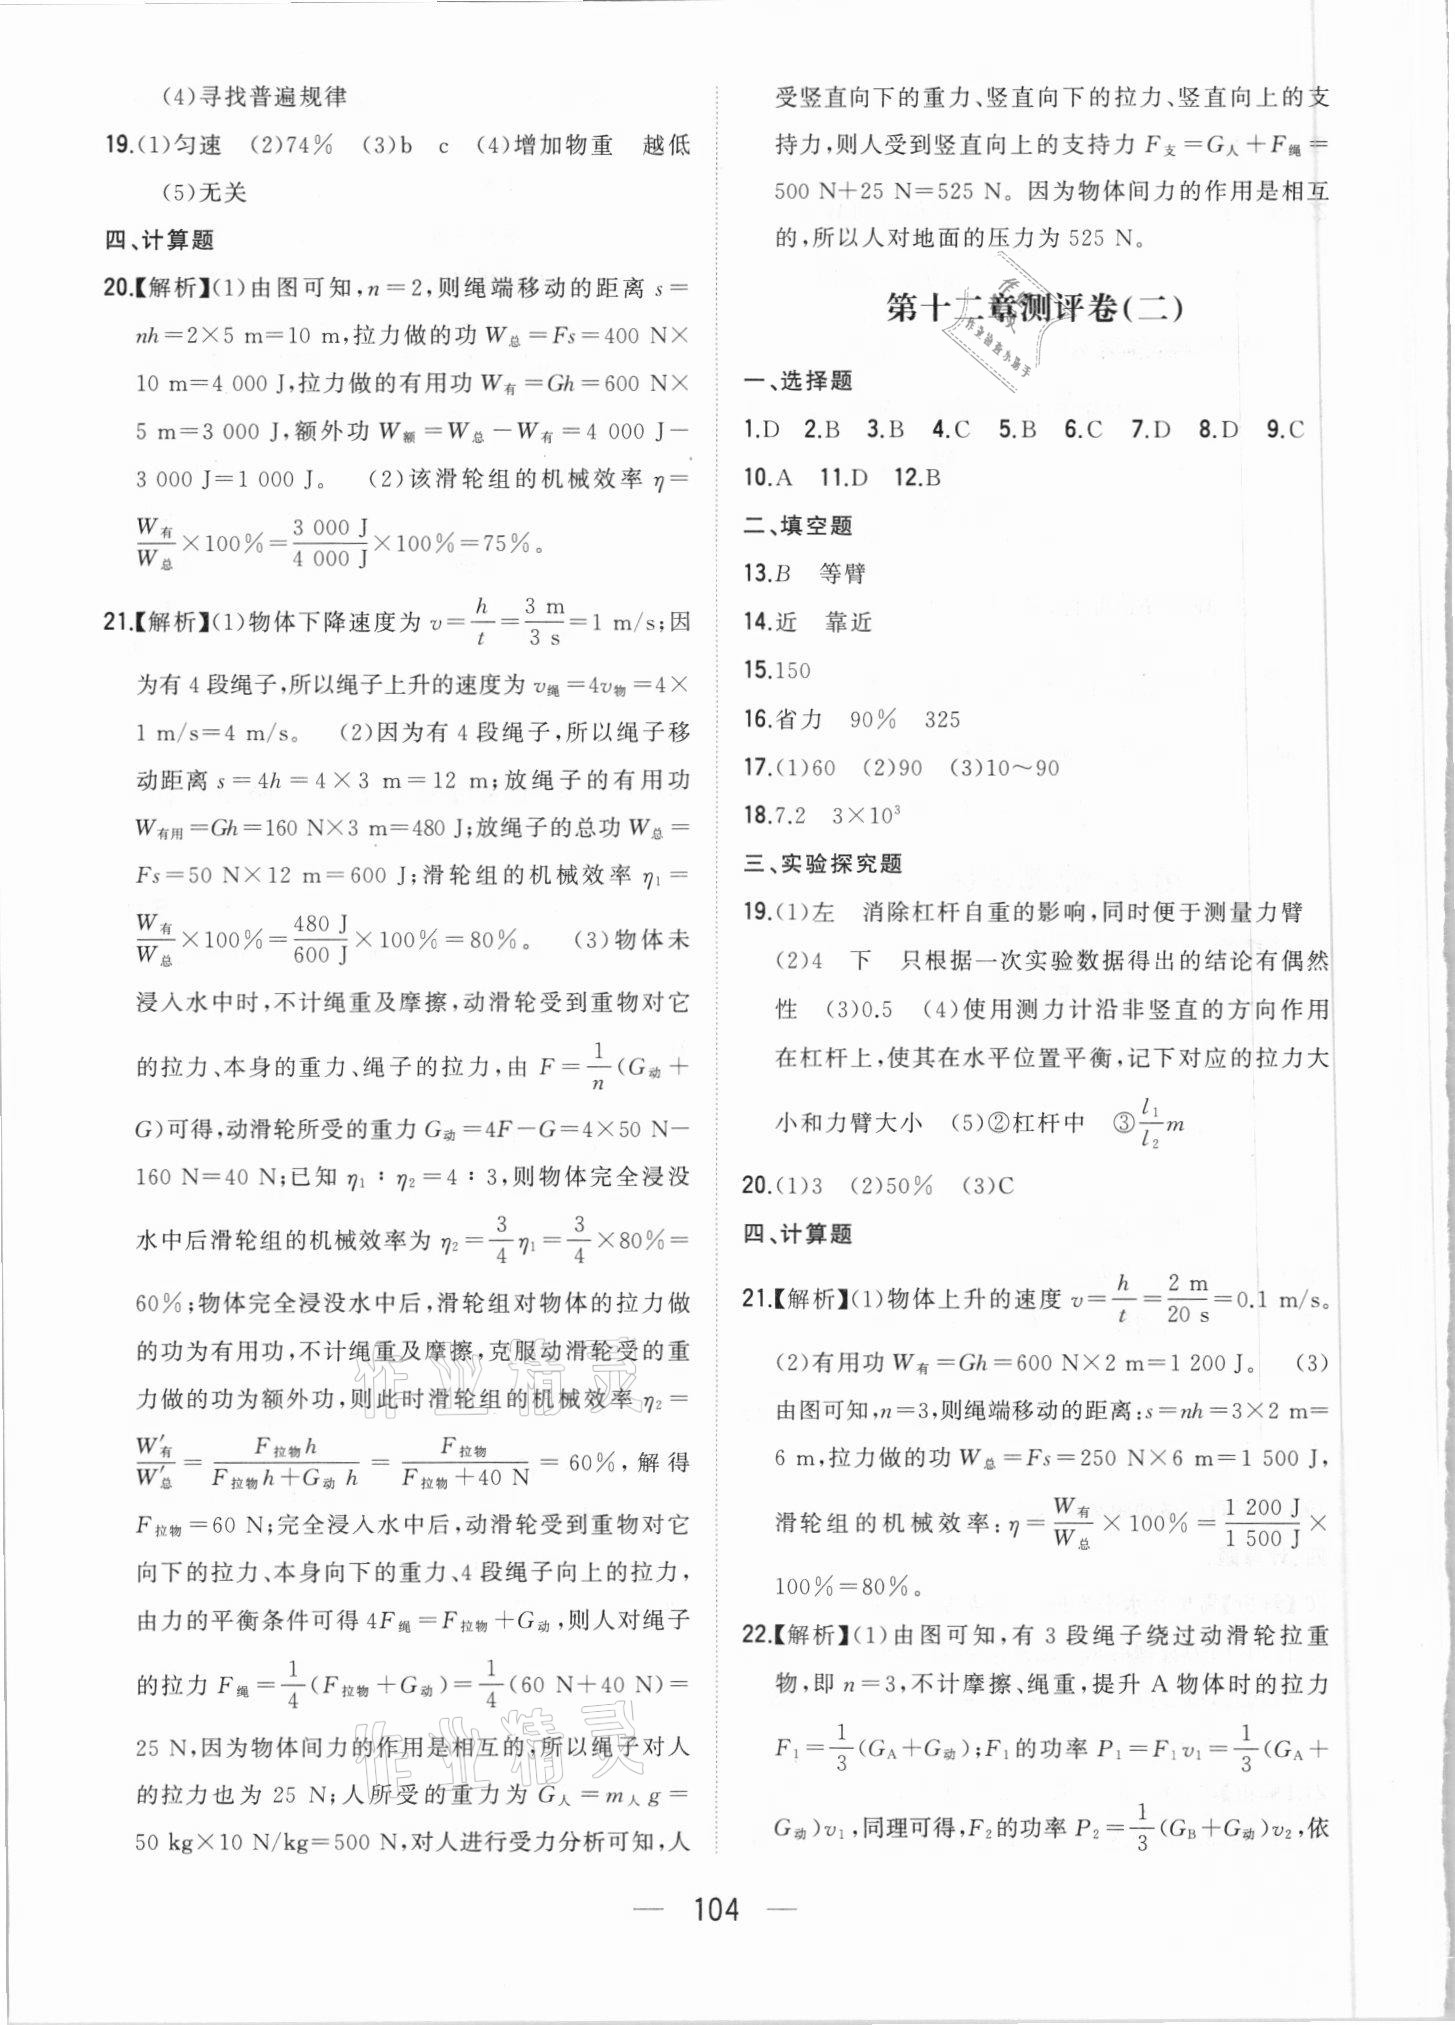 (4)寻找普遍规律
19.(1)匀速 (2)74% (3)b c (4)增加物重 越低
(5)无关
四、计算题
20.【解析】(1)由图可知,n=2,则绳端移动的距离 s=
nh=2×5 m=10 m,拉力做的功 W总=Fs=400 N×
10 m=4 000 J,拉力做的有用功 W有=Gh=600 N×
5 m=3 000 J,额外功 W额=W总-W有=4 000 J-
3 000 J=1 000 J。 (2)该滑轮组的机械效率 η=
W有/W总×100%=3 000 J/4 000 J×100%=75%。
21.【解析】(1)物体下降速度为 v=h/t=3 m/3 s=1 m/s;因
为有 4 段绳子,所以绳子上升的速度为 v绳=4v物=4×
1 m/s=4 m/s。 (2)因为有 4 段绳子,所以绳子移
动距离 s=4h=4×3 m=12 m;放绳子的有用功
W有用=Gh=160 N×3 m=480 J;放绳子的总功 W总=
Fs=50 N×12 m=600 J;滑轮组的机械效率 η₁=
W有/W总×100%=480 J/600 J×100%=80%。 (3)物体未
浸入水中时,不计绳重及摩擦,动滑轮受到重物对它
的拉力、本身的重力、绳子的拉力,由 F=1/n(G动+
G)可得,动滑轮所受的重力 G动=4F-G=4×50 N-
160 N=40 N;已知 η₁∶η₂=4∶3,则物体完全浸没
水中后滑轮组的机械效率为 η₂=3/4η₁=3/4×80%=
60%;物体完全浸没水中后,滑轮组对物体的拉力做
的功为有用功,不计绳重及摩擦,克服动滑轮受的重
力做的功为额外功,则此时滑轮组的机械效率 η₂=
W′有/W′总=F拉物h/F拉物h+G动h=F拉物/F拉物+40 N=60%,解得
F拉物=60 N;完全浸入水中后,动滑轮受到重物对它
向下的拉力、本身向下的重力、4 段绳子向上的拉力,
由力的平衡条件可得 4F绳=F拉物+G动,则人对绳子
的拉力 F绳=1/4(F拉物+G动)=1/4(60 N+40 N)=
25 N,因为物体间力的作用是相互的,所以绳子对人
的拉力也为 25 N;人所受的重力为 G人=m人g=
50 kg×10 N/kg=500 N,对人进行受力分析可知,人
受竖直向下的重力、竖直向下的拉力、竖直向上的支
持力,则人受到竖直向上的支持力 F支=G人+F绳=
500 N+25 N=525 N。因为物体间力的作用是相互
的,所以人对地面的压力为 525 N。
第十二章测评卷(二)
一、选择题
1.D 2.B 3.B 4.C 5.B 6.C 7.D 8.D 9.C
10.A 11.D 12.B
二、填空题
13.B 等臂
14.近 靠近
15.150
16.省力 90% 325
17.(1)60 (2)90 (3)10~90
18.7.2 3×10³
三、实验探究题
19.(1)左 消除杠杆自重的影响,同时便于测量力臂
(2)4 下 只根据一次实验数据得出的结论有偶然
性 (3)0.5 (4)使用测力计沿非竖直的方向作用
在杠杆上,使其在水平位置平衡,记下对应的拉力大
小和力臂大小 (5)②杠杆中 ③l₁/l₂m
20.(1)3 (2)50% (3)C
四、计算题
21.【解析】(1)物体上升的速度 v=h/t=2 m/20 s=0.1 m/s。
(2)有用功 W有=Gh=600 N×2 m=1 200 J。 (3)
由图可知,n=3,则绳端移动的距离:s=nh=3×2 m=
6 m,拉力做的功 W总=Fs=250 N×6 m=1 500 J,
滑轮组的机械效率:η=W有/W总×100%=1 200 J/1 500 J×
100%=80%。
22.【解析】(1)由图可知,有 3 段绳子绕过动滑轮拉重
物,即 n=3,不计摩擦、绳重,提升 A 物体时的拉力
F₁=1/3(GA+G动);F₁的功率 P₁=F₁v₁=1/3(GA+
G动)v₁,同理可得,F₂的功率 P₂=1/3(GB+G动)v₂,依
— 104 —
作业精灵
作业精灵